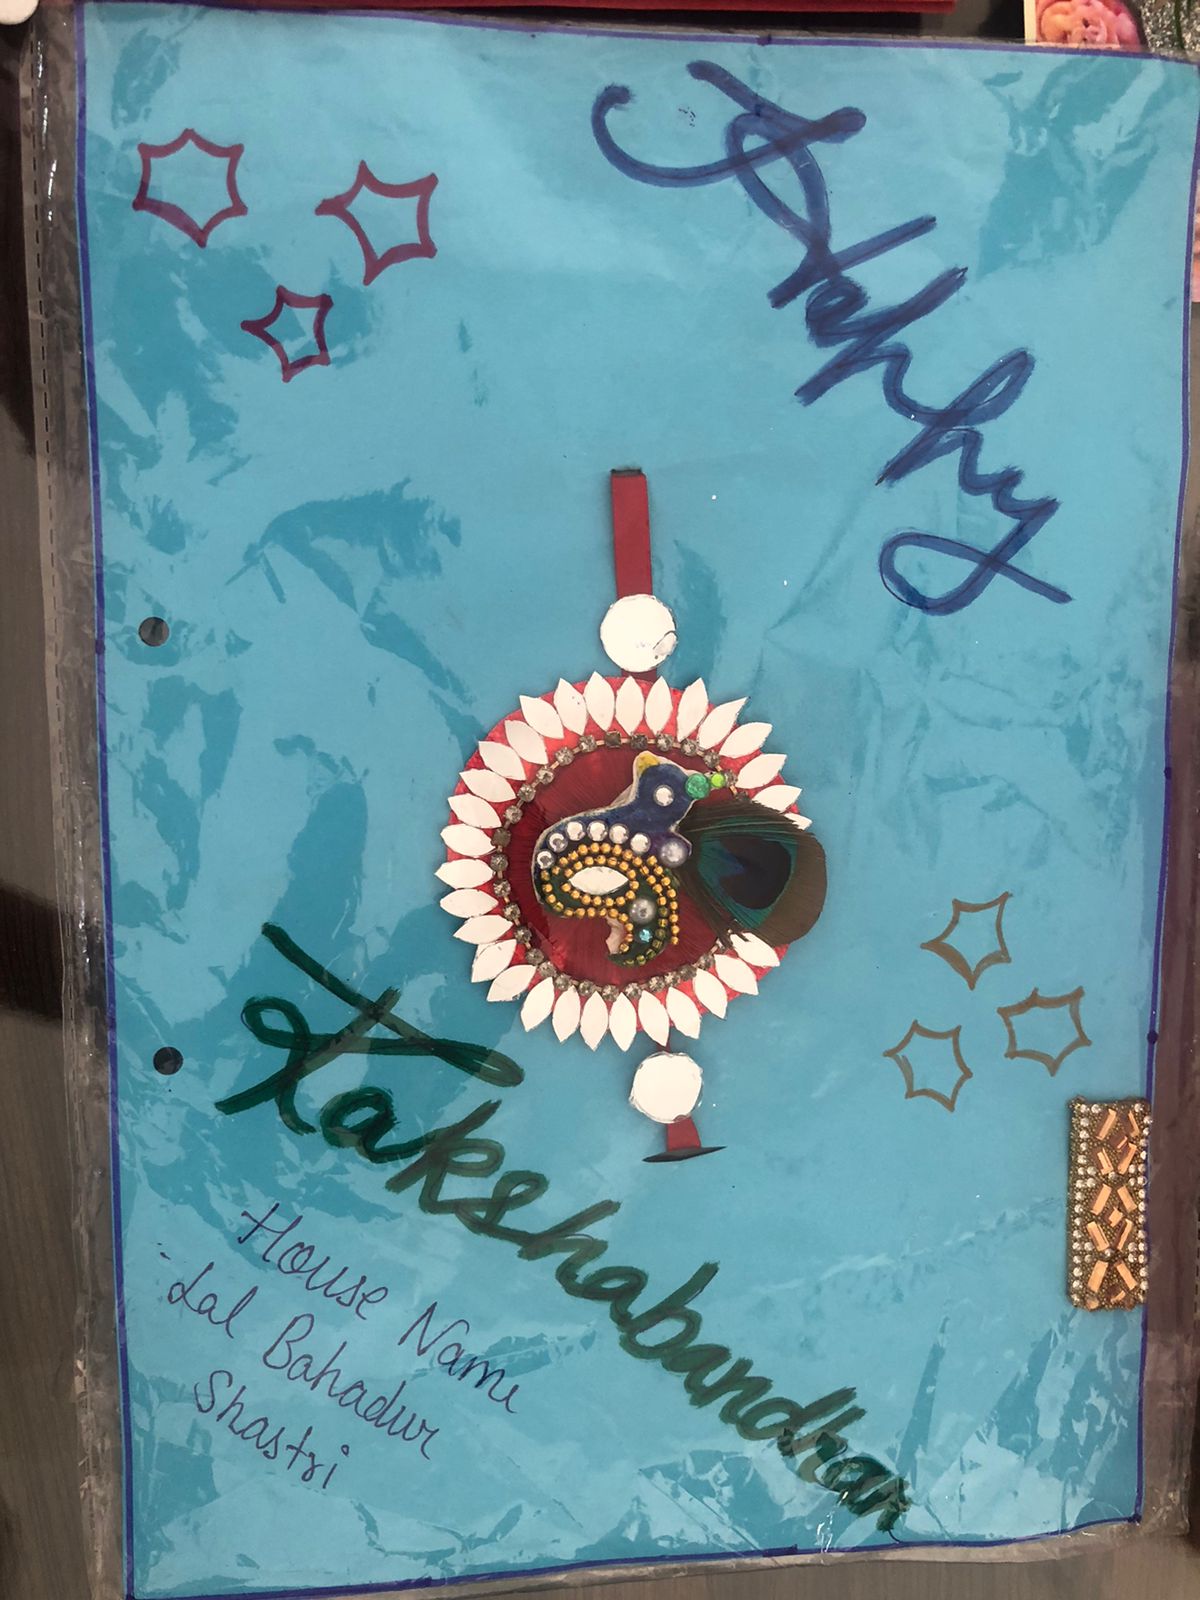 Happy
Rakshabandhan
House Name
Lal Bahadur
Shastri